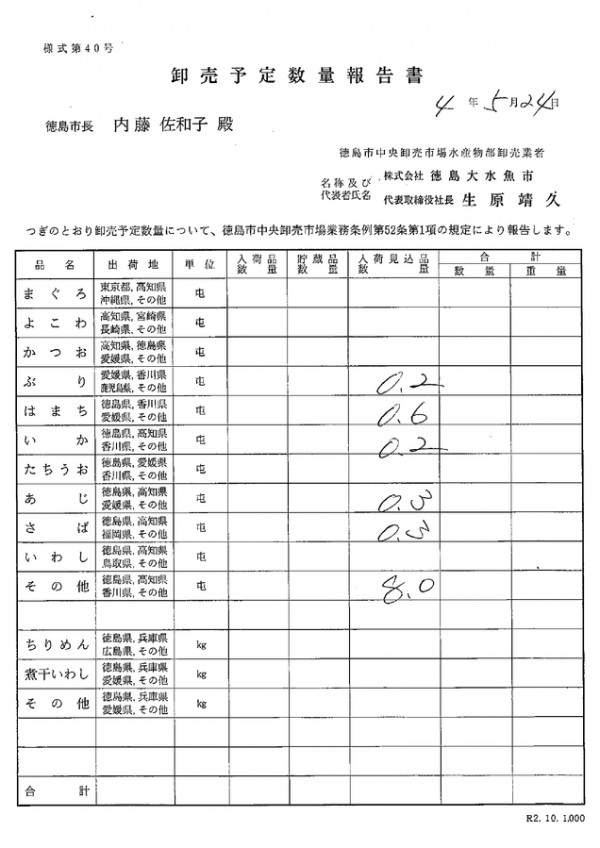 様式第40号
卸売予定数量報告書
4年5月24日
徳島市長 内藤 佐和子 殿
徳島市中央卸売市場水産物部卸売業者
名称及び 株式会社 徳島大水魚市
代表者氏名 代表取締役社長 生原靖久
つぎのとおり卸売予定数量について、徳島市中央卸売市場業務条例第52条第1項の規定により報告します。
品名 出荷地 単位 入荷品数量 貯蔵品数量 入荷見込品数量 合計 数量 重量
まぐろ 東京都,高知県 沖縄県,その他 屯
よこわ 高知県,宮崎県 長崎県,その他 屯
かつお 高知県,徳島県 愛媛県,その他 屯
ぶり 愛媛県,香川県 鹿児島県,その他 屯 0.2
はまち 徳島県,香川県 愛媛県,その他 屯 0.6
いか 徳島県,高知県 香川県,その他 屯 0.2
たちうお 徳島県,愛媛県 香川県,その他 屯
あじ 徳島県,高知県 愛媛県,その他 屯 0.3
さば 徳島県,高知県 福岡県,その他 屯 0.3
いわし 徳島県,高知県 鳥取県,その他 屯
その他 徳島県,高知県 香川県,その他 屯 8.0
ちりめん 徳島県,兵庫県 広島県,その他 kg
煮干いわし 徳島県,兵庫県 愛媛県,その他 kg
その他 徳島県,兵庫県 愛媛県,その他 kg
合計
R2.10.1,000